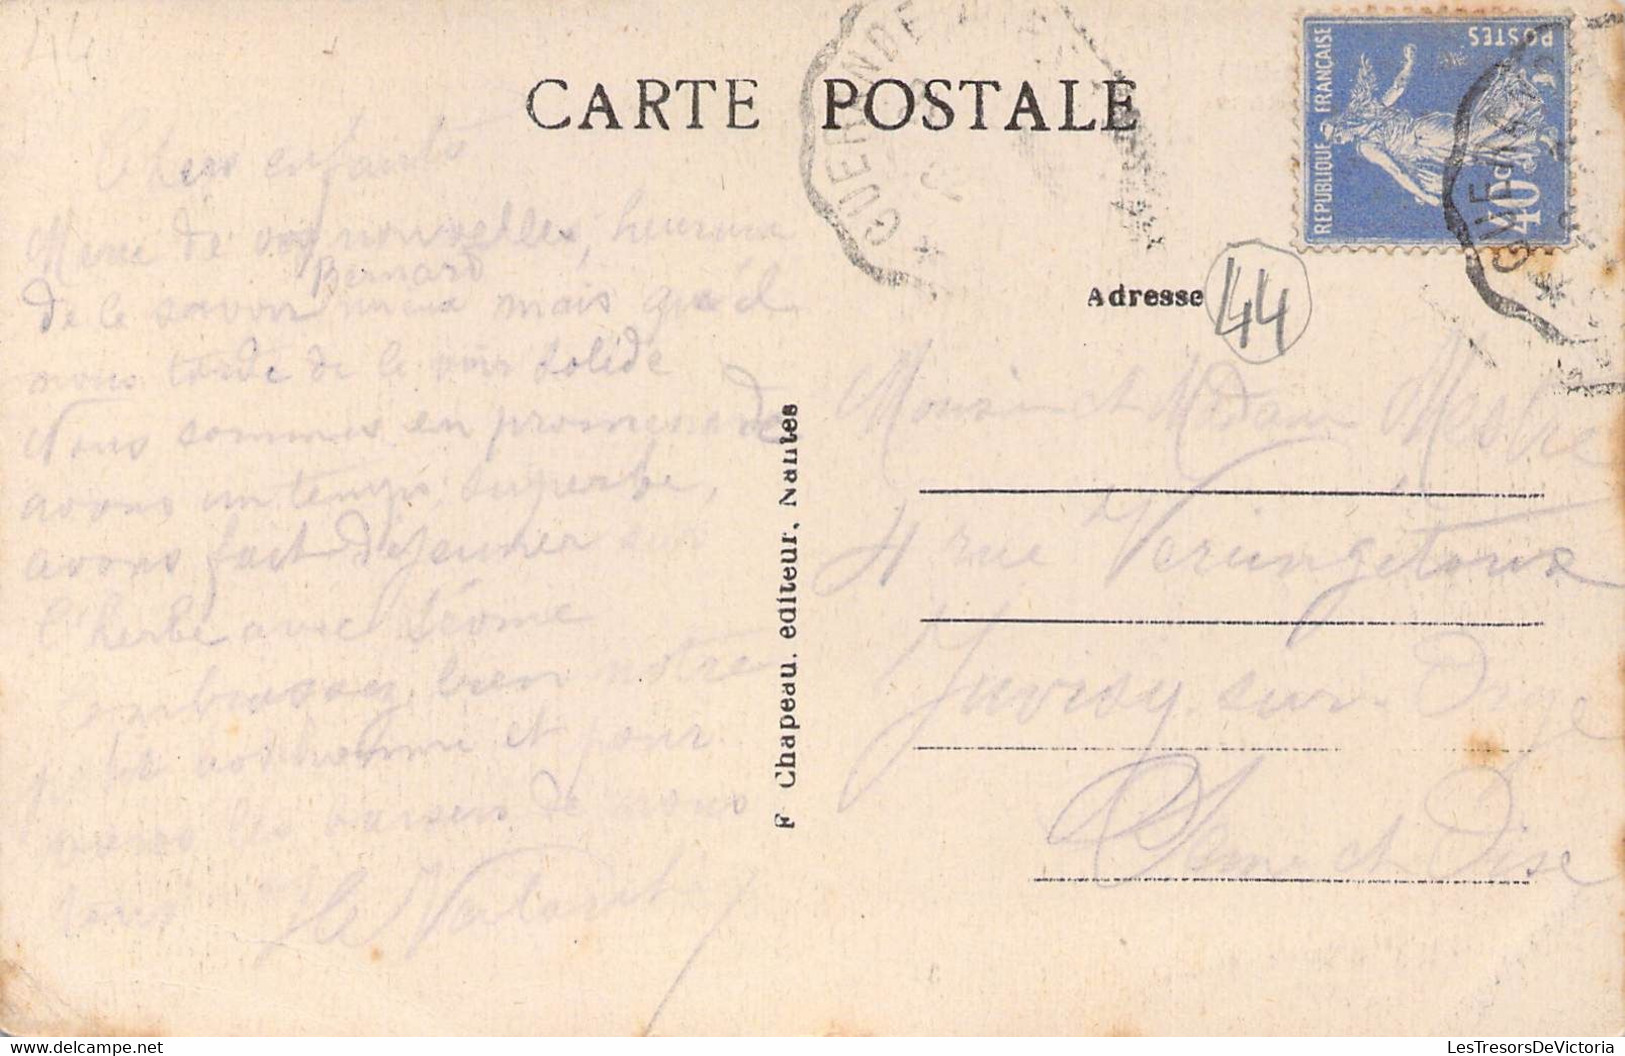 44
CARTE POSTALE
GUERANDE
REPUBLIQUE FRANÇAISE
POSTES
40c
GUERANDE
Adresse
44
Chers enfants
Merci de vos nouvelles, heureux
Bernard
de le savoir mieux mais qu'il
nous tarde de le voir solide
Nous sommes en promenade
avons un temps superbe,
avons fait déjeuner sur
l'herbe avec Léonie
Embrassez bien notre
petit bonhomme et pour
vous les baisers de nous
tous
F Chapeau, editeur, Nantes
Monsieur et Madame Mestre
4 rue Vercingetorix
Juvisy sur Orge
Seine et Oise
LesTresorsDeVictoria